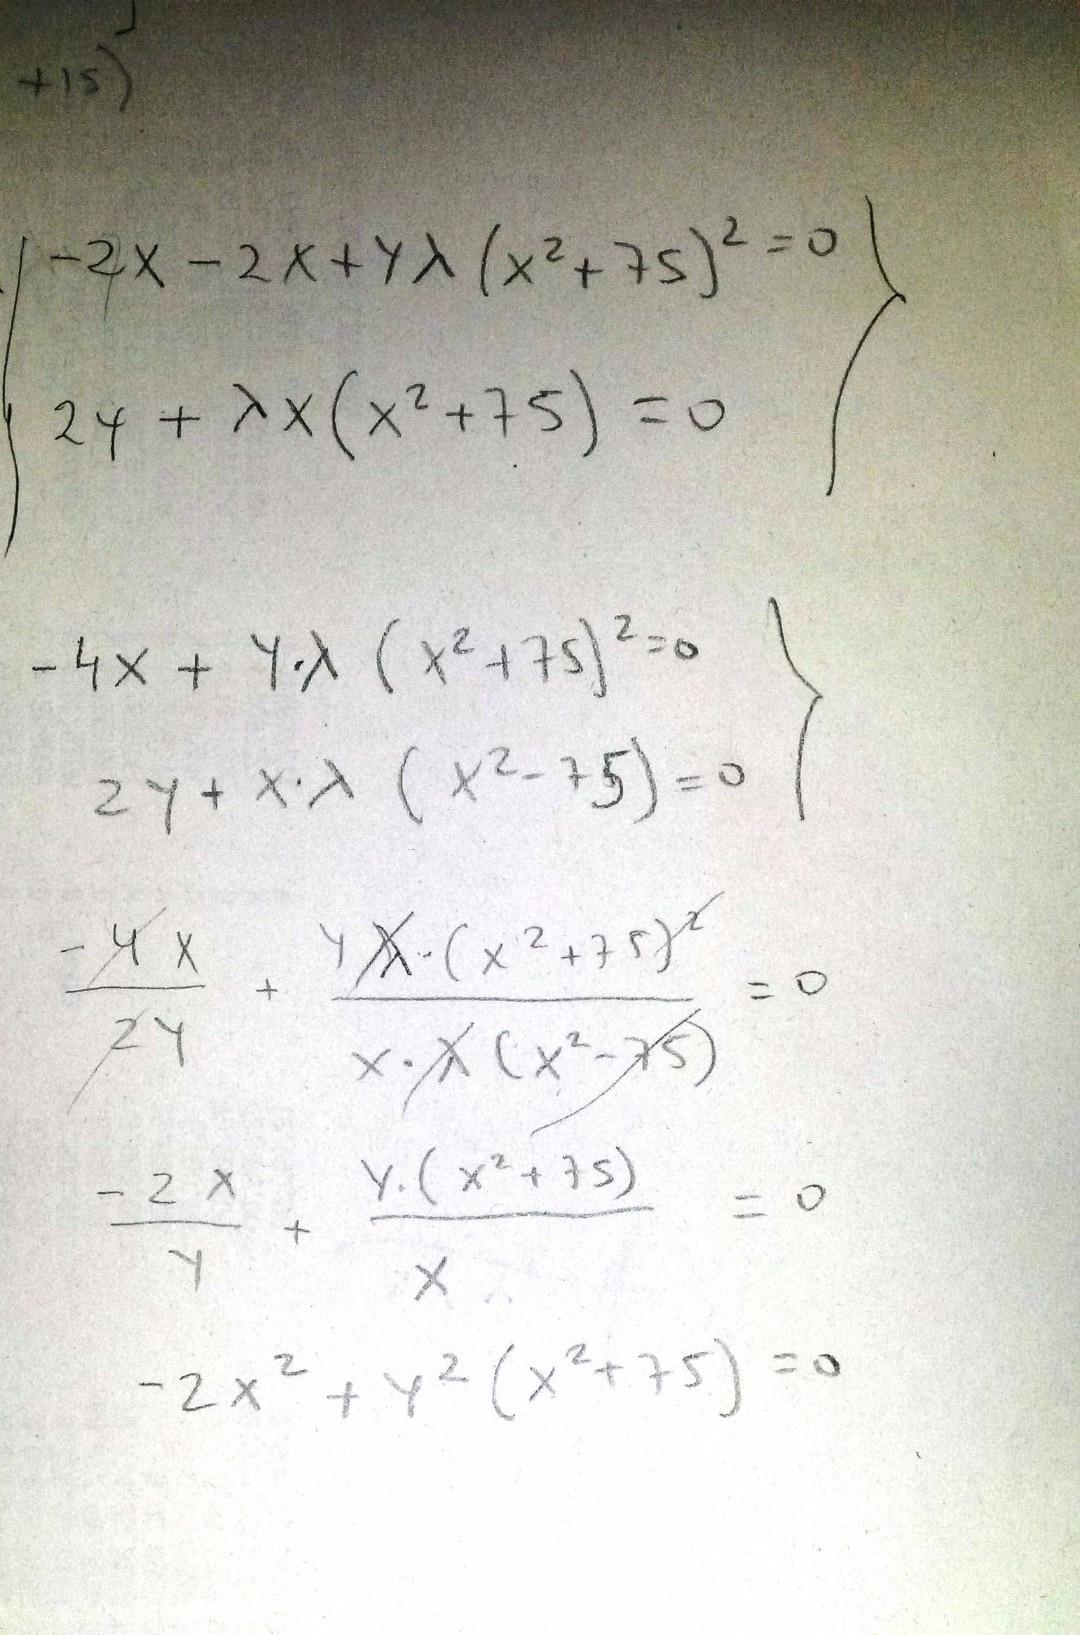 +15)
-2x - 2x + yλ (x²+75)² = 0
2y + λx(x²+75) = 0
-4x + y·λ (x²+75)² = 0
2y + x·λ (x²-75) = 0
-4x/2y + yλ·(x²+75)²/x·λ(x²-75) = 0
-2x/y + y·(x²+75)/x = 0
-2x² + y²(x²+75) = 0